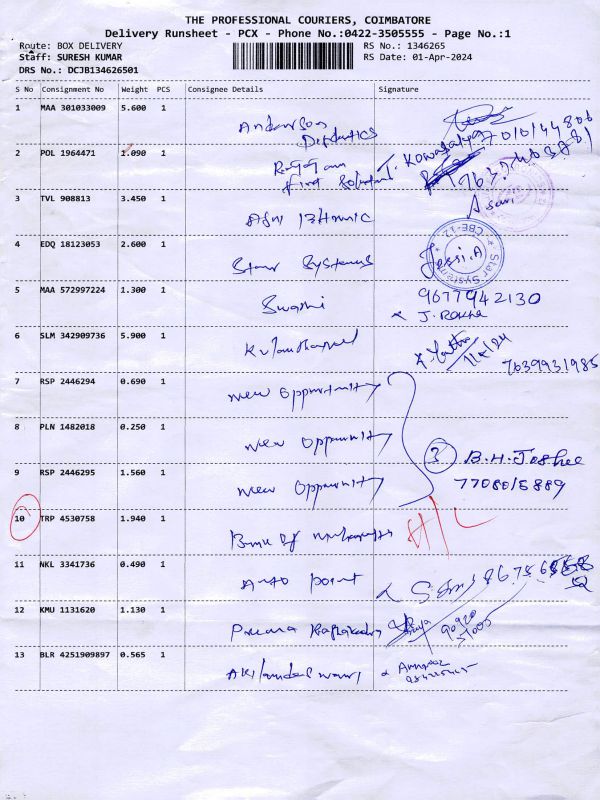 THE PROFESSIONAL COURIERS, COIMBATORE
Delivery Runsheet - PCX - Phone No.:0422-3505555 - Page No.:1
Route: BOX DELIVERY
RS No.: 1346265
Staff: SURESH KUMAR
RS Date: 01-Apr-2024
DRS No.: DCJB134626501
S No Consignment No Weight PCS Consignee Details Signature
1 MAA 301033009 5.600 1 Anderson
2 POL 1964471 1.090 1 First
3 TVL 908813 3.450 1
4 EDQ 18123053 2.600 1 Star Systems Jessi.A
Star Systems CBE-12
5 MAA 572997224 1.300 1 Swathi 9677942130
J. Rekha
6 SLM 342909736 5.900 1
7639931985
7 RSP 2446294 0.690 1 New Opportunity
8 PLN 1482018 0.250 1 New Opportunity
3 B.H.Joshee
9 RSP 2446295 1.560 1 New Opportunity 7708015889
10 TRP 4530758 1.940 1 H/L
11 NKL 3341736 0.490 1 Auto Point
12 KMU 1131620 1.130 1
13 BLR 4251909897 0.565 1 Akilandeswari